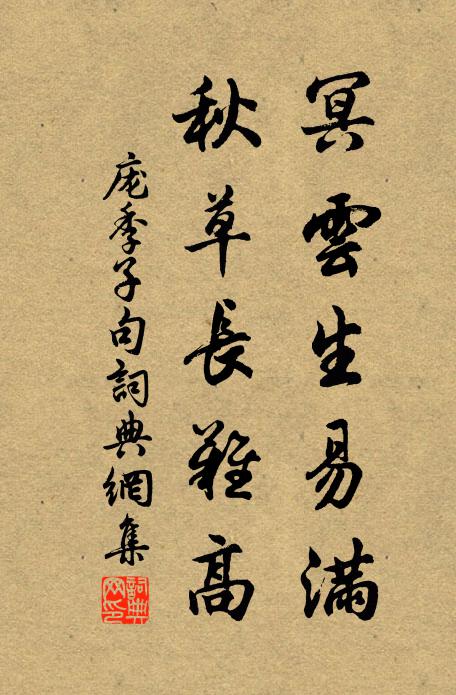 冥雲生易滿
秋草長難高
庞季子句詞典網集
詞典網印